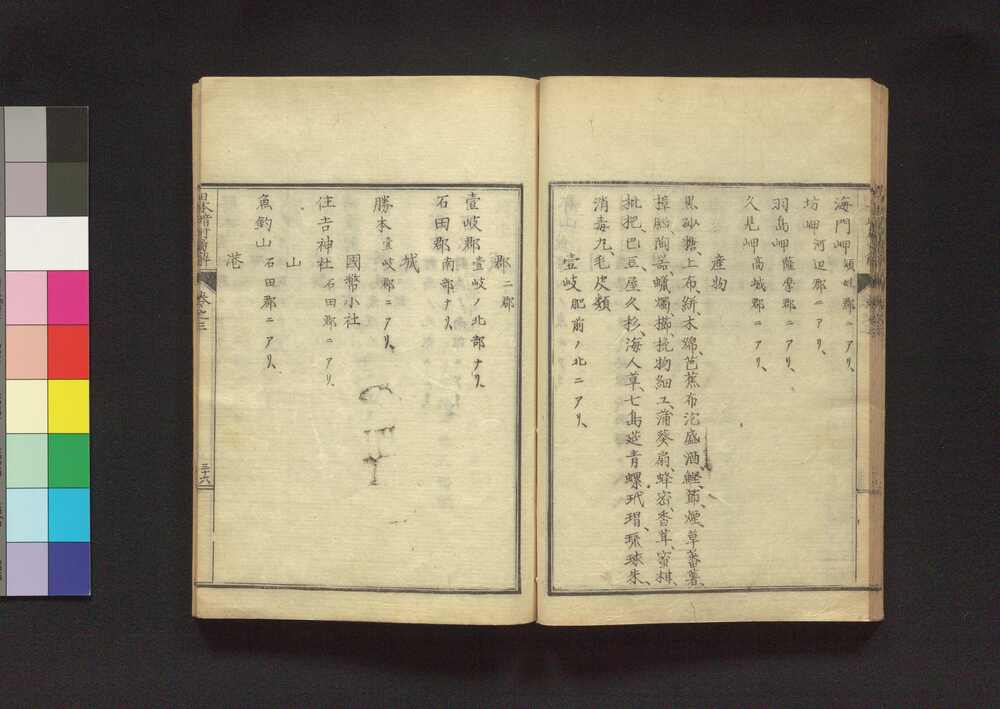 海門岬頴娃郡ニアリ、
坊岬河辺郡ニアリ、
羽島岬薩摩郡ニアリ、
久見岬高城郡ニアリ、
産物
黒砂糖、上布、絣、木綿、芭蕉布、泡盛酒、鰹節、煙草、蕃薯、
樟脳、陶器、蠟燭、櫛、挽物細工、蒲葵扇、蜂密、香茸、蜜柑、
枇把、巴豆、屋久杉、海人草、七島莚、青螺、玳瑁、琉球朱、
消毒丸、毛皮類
壹岐肥前ノ北ニアリ、
郡二郡
壹岐郡壹岐ノ北部ナリ、
石田郡南部ナリ、
城
勝本壹岐郡ニアリ、
國幣小社
住吉神社石田郡ニアリ、
山
魚釣山石田郡ニアリ、
港
卷之三
三十六